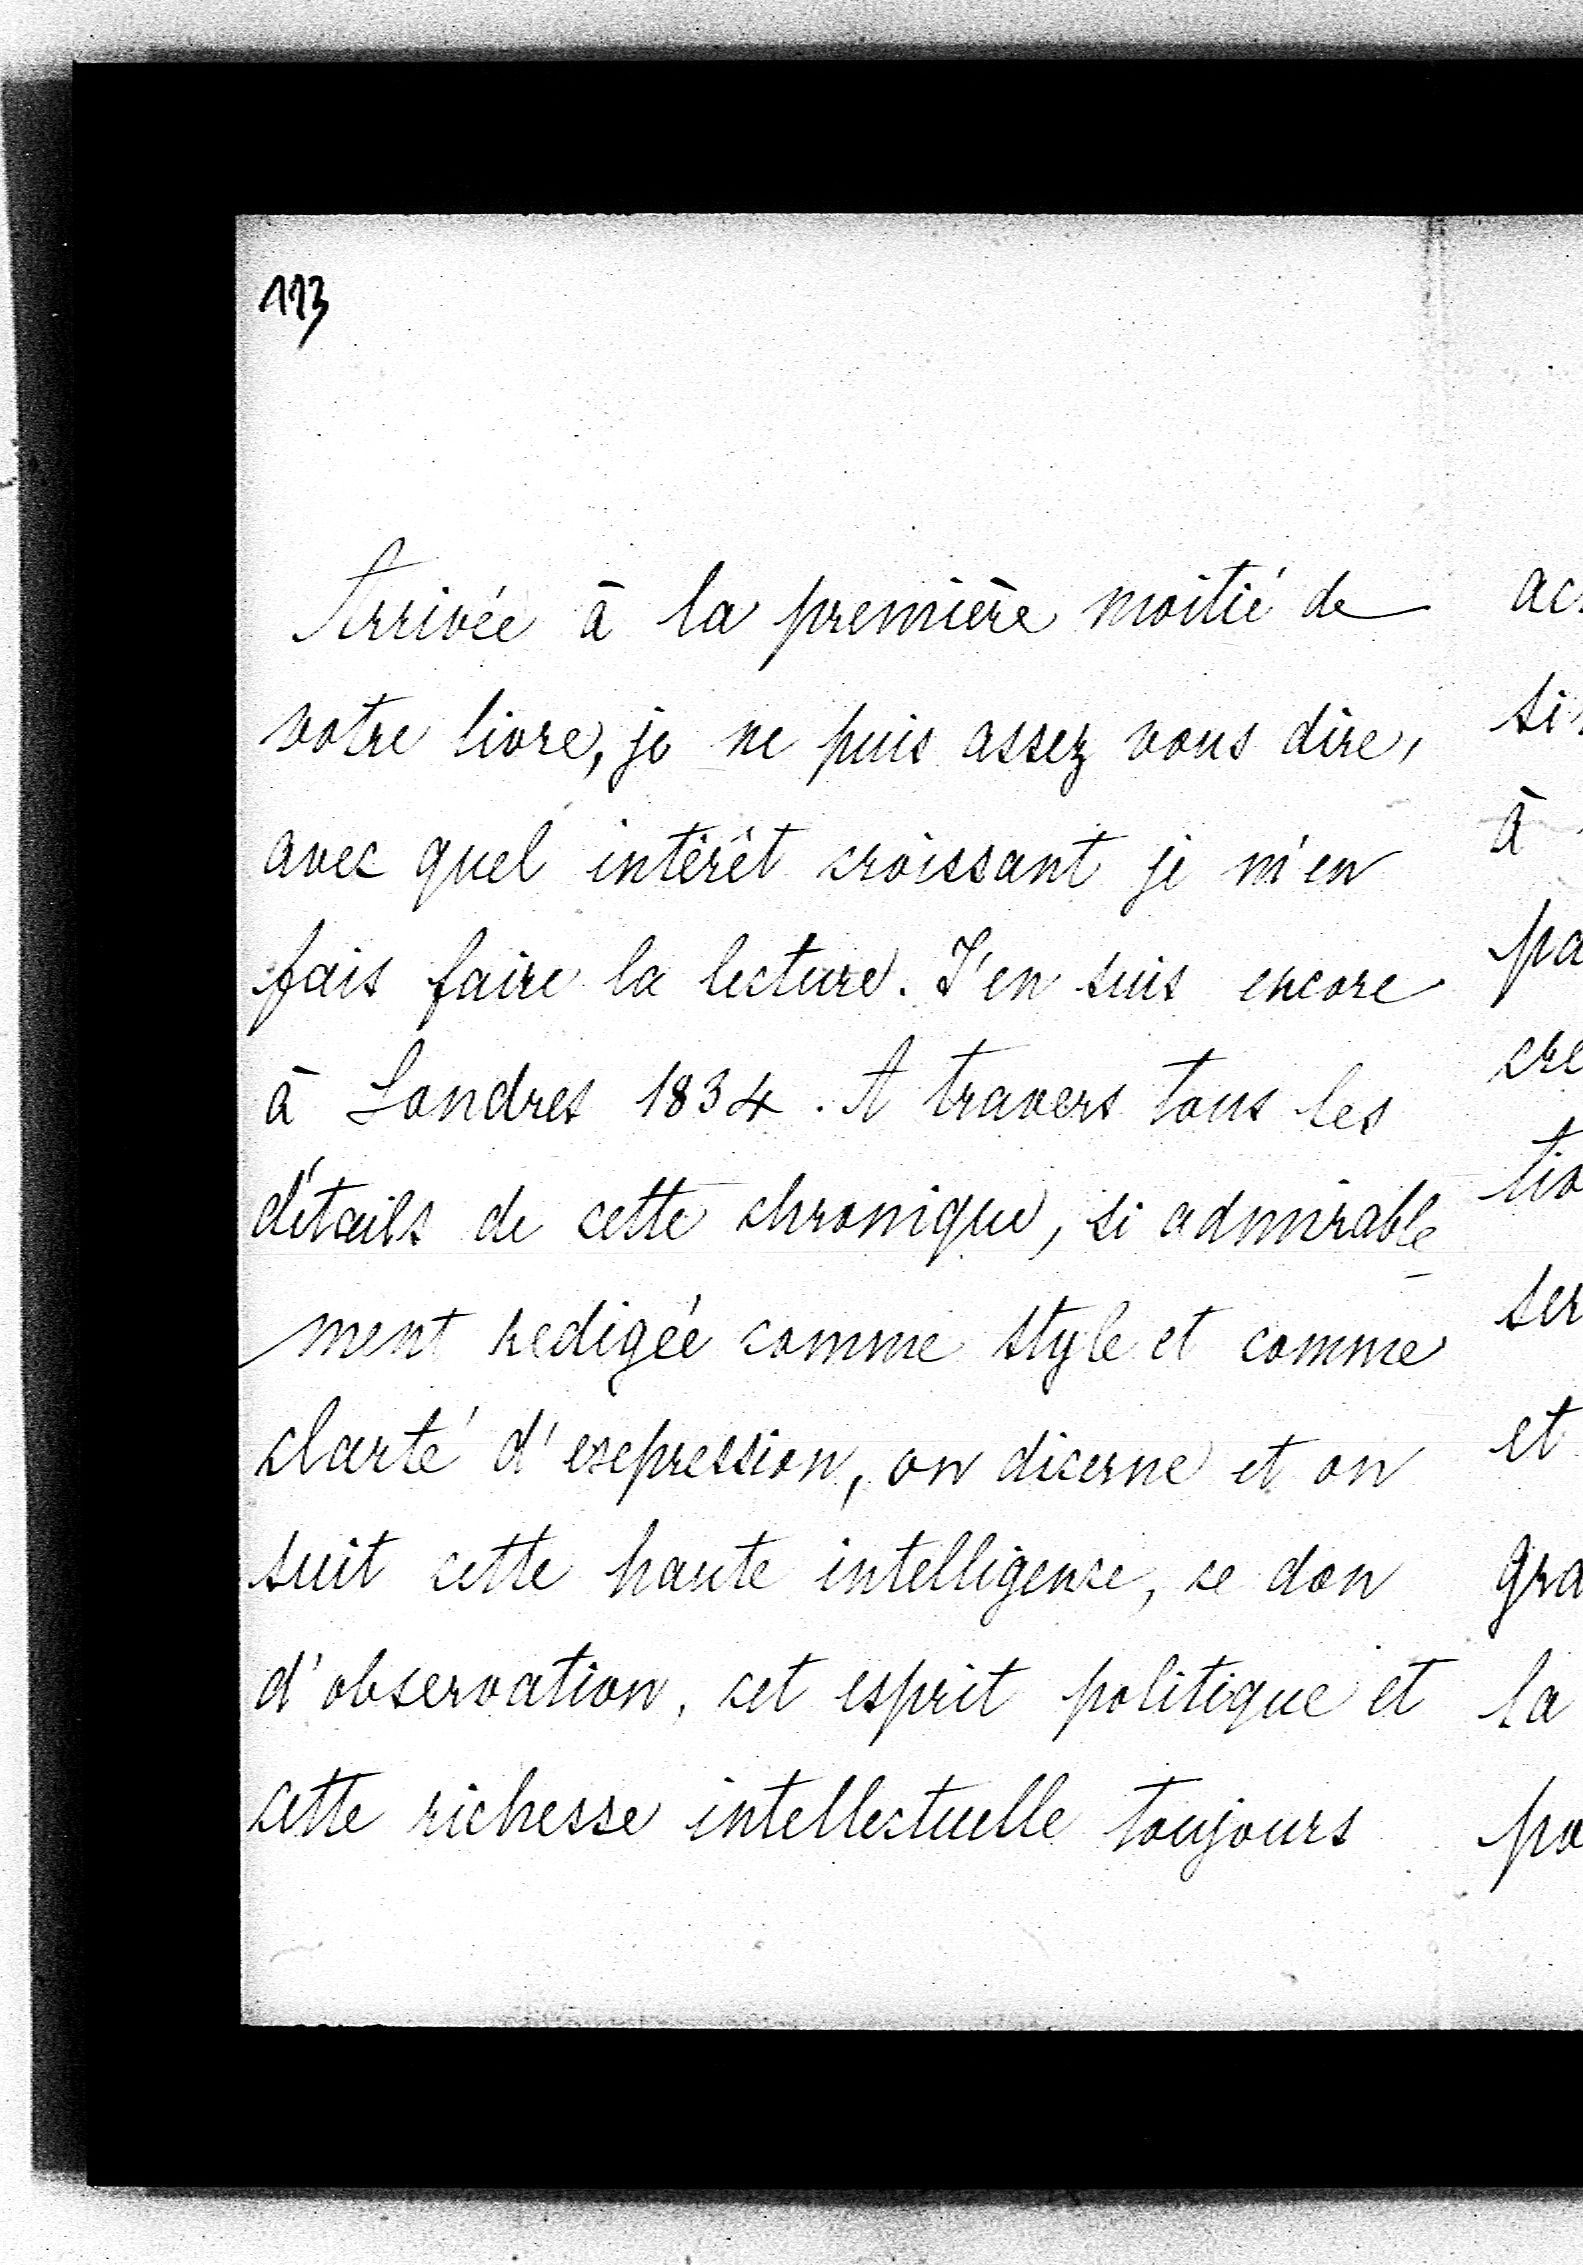 113
Arrivée à la première moitié de
votre livre, je ne puis assez vous dire,
avec quel intérêt croissant je m'en
fais faire la lecture. J'en suis encore
à Londres 1834. A travers tous les
détails de cette chronique, si admirable
ment redigée comme style et comme
clarté d'expression, on dicerne et on
suit cette haute intelligence, ce don
d'observation, cet esprit politique et
cette richesse intellectuelle toujours
à
pa
cre
tio
ser
et
gra
la
po